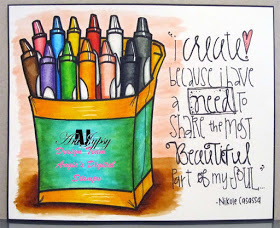 "i create
because i have
a need to
share the most
Beautiful
part of my soul."
-Nikole Casassa
Art Gypsy
Design Team
Angie's Digital
Stamps